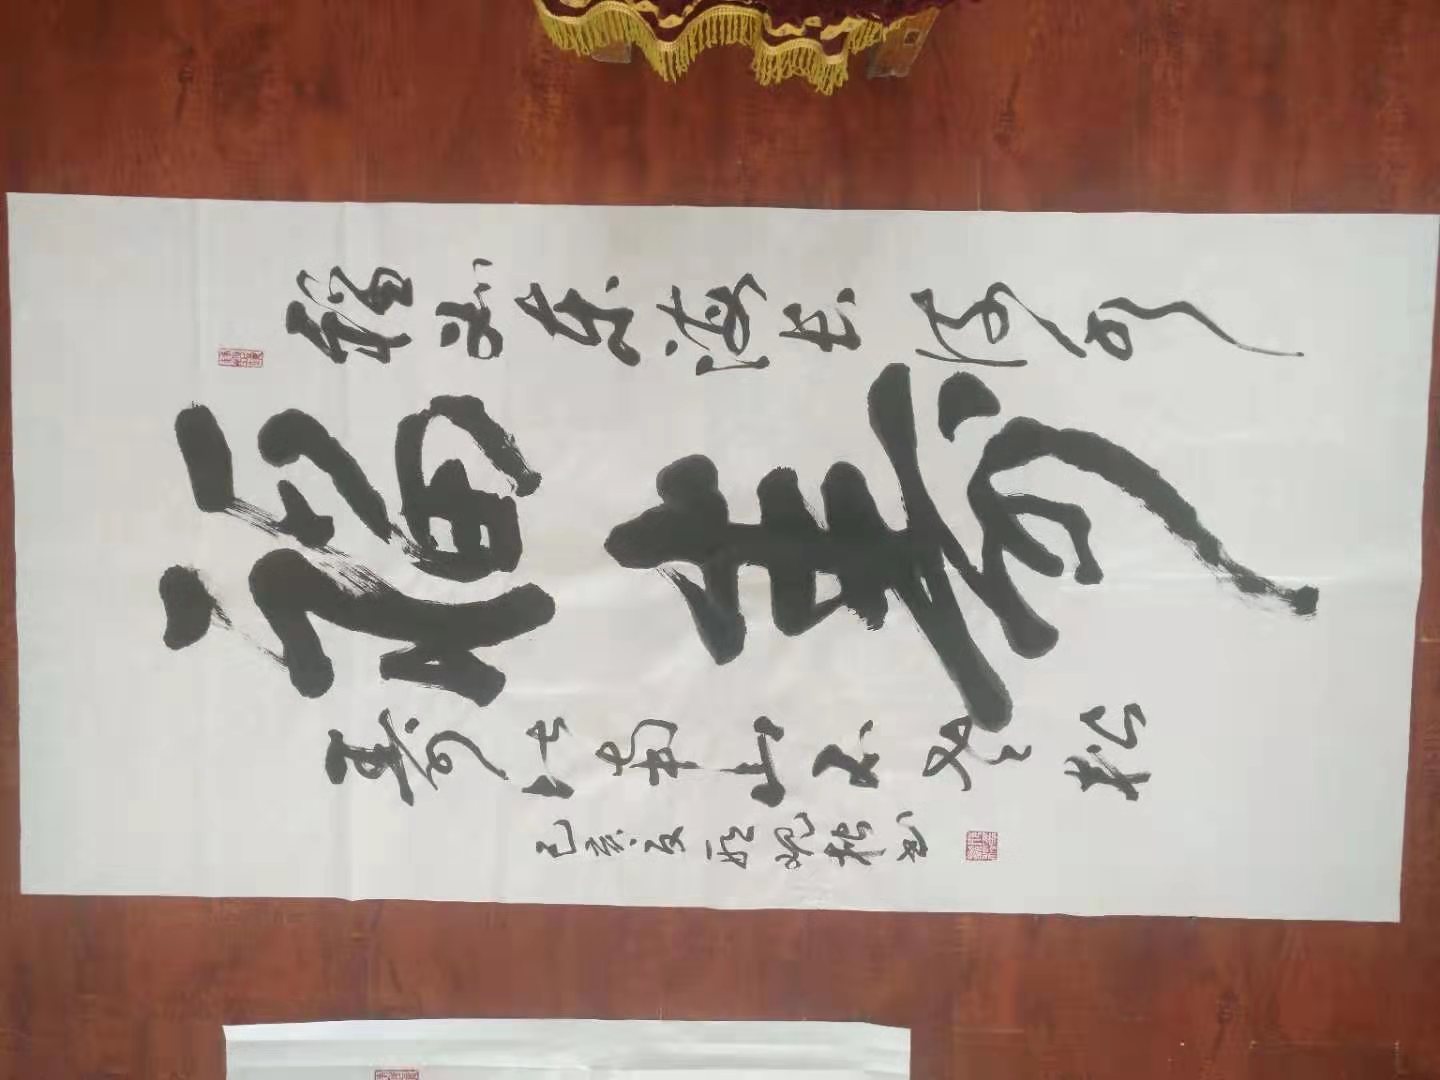 福如东海长流水
福寿
寿比南山不老松
己亥夏
书